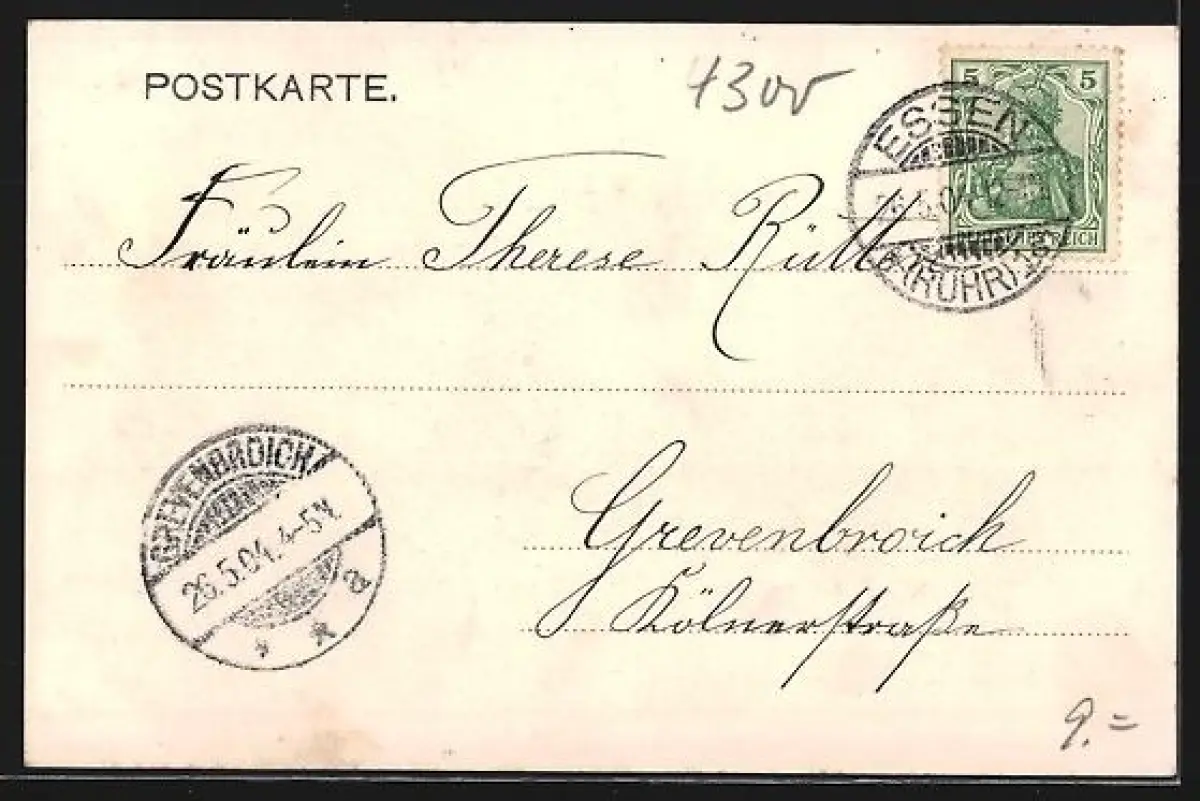 POSTKARTE.
4300
5 5
ESSEN
26.5.04.
(RUHR)
Fräulein Therese Rütt
GREVENBROICH
26.5.04. 4-5N.
* * a
Grevenbroich
Kölnerstraße
9.=